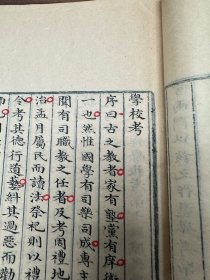 學校考
序曰古之教者家有塾黨有序術
一也然惟國學有司樂司成專主
聞有司職教之任者及考周禮地
治孟月屬民而讀法祭祀則以禮
令考其德行道藝糾其過惡而勸